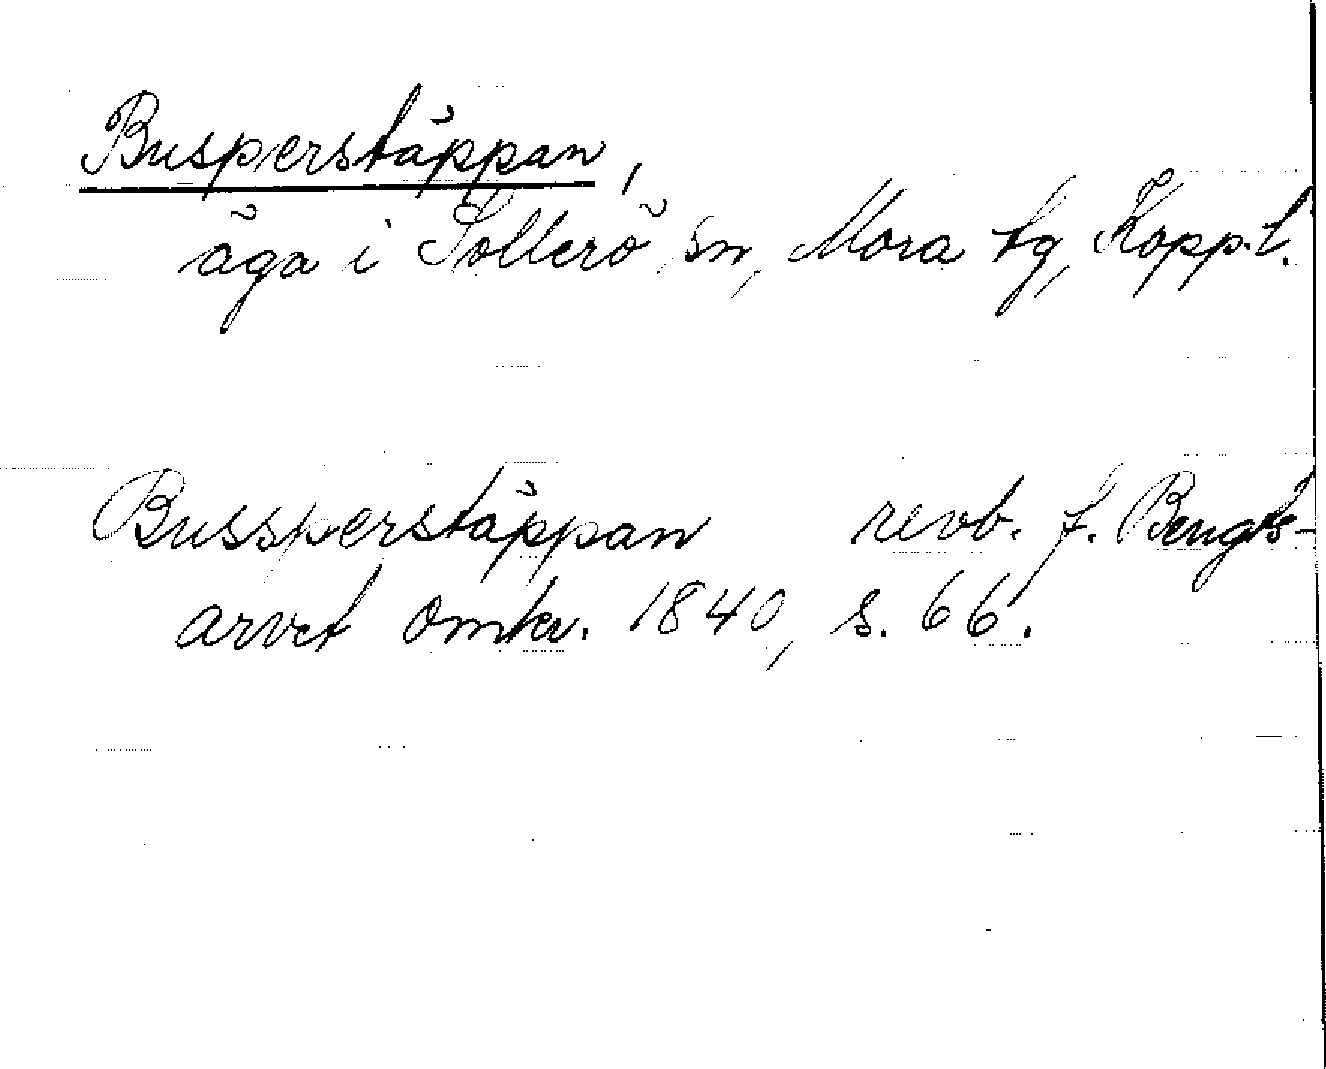 Busperstäppan,
äga i Sollerö sn, Mora tg, Kopp. l.
Bussperstäppan revb. f. Bengts-
arvet omkr. 1840, s. 66.